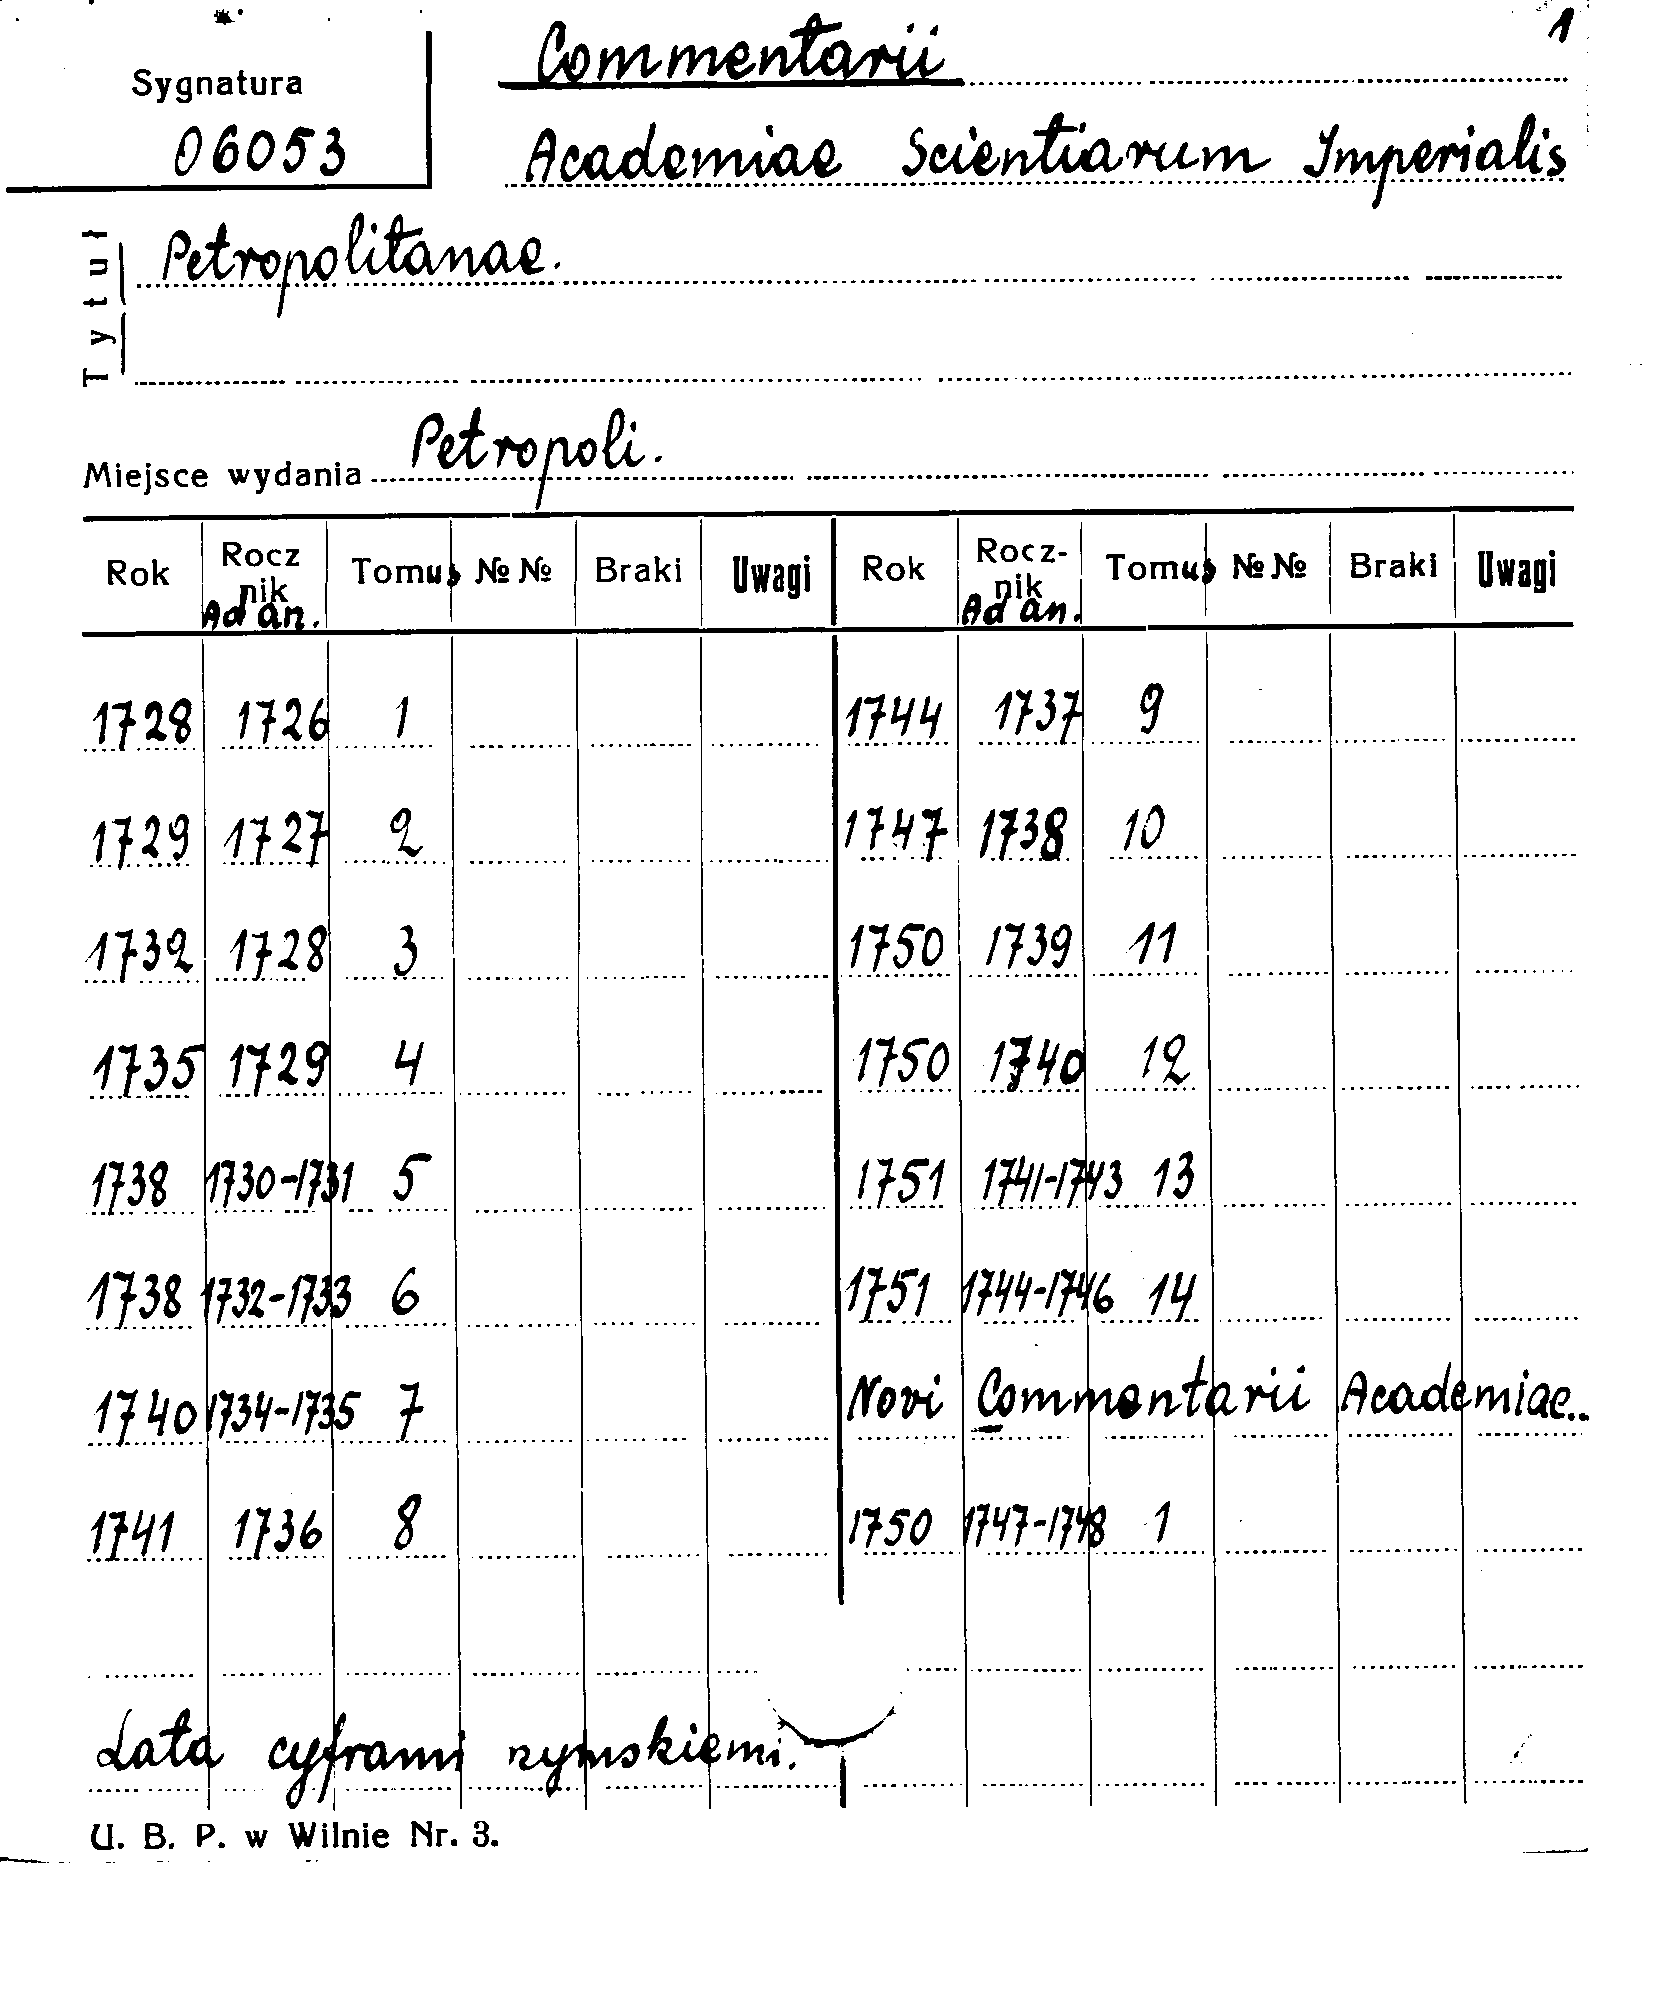 1
Sygnatura
06053
Commentarii
Academiae Scientiarum Imperialis
Tytuł
Petropolitanae.
Miejsce wydania Petropoli.
Rok Rocz nik Ad an. Tomus №№ Braki Uwagi Rok Rocz-nik Ad an. Tomus №№ Braki Uwagi
1728 1726 1 1744 1737 9
1729 1727 2 1747 1738 10
1732 1728 3 1750 1739 11
1735 1729 4 1750 1740 12
1738 1730-1731 5 1751 1741-1743 13
1738 1732-1733 6 1751 1744-1746 14
1740 1734-1735 7 Novi Commentarii Academiae..
1741 1736 8 1750 1747-1748 1
Lata cyframi rzymskiemi.
U. B. P. w Wilnie Nr. 3.